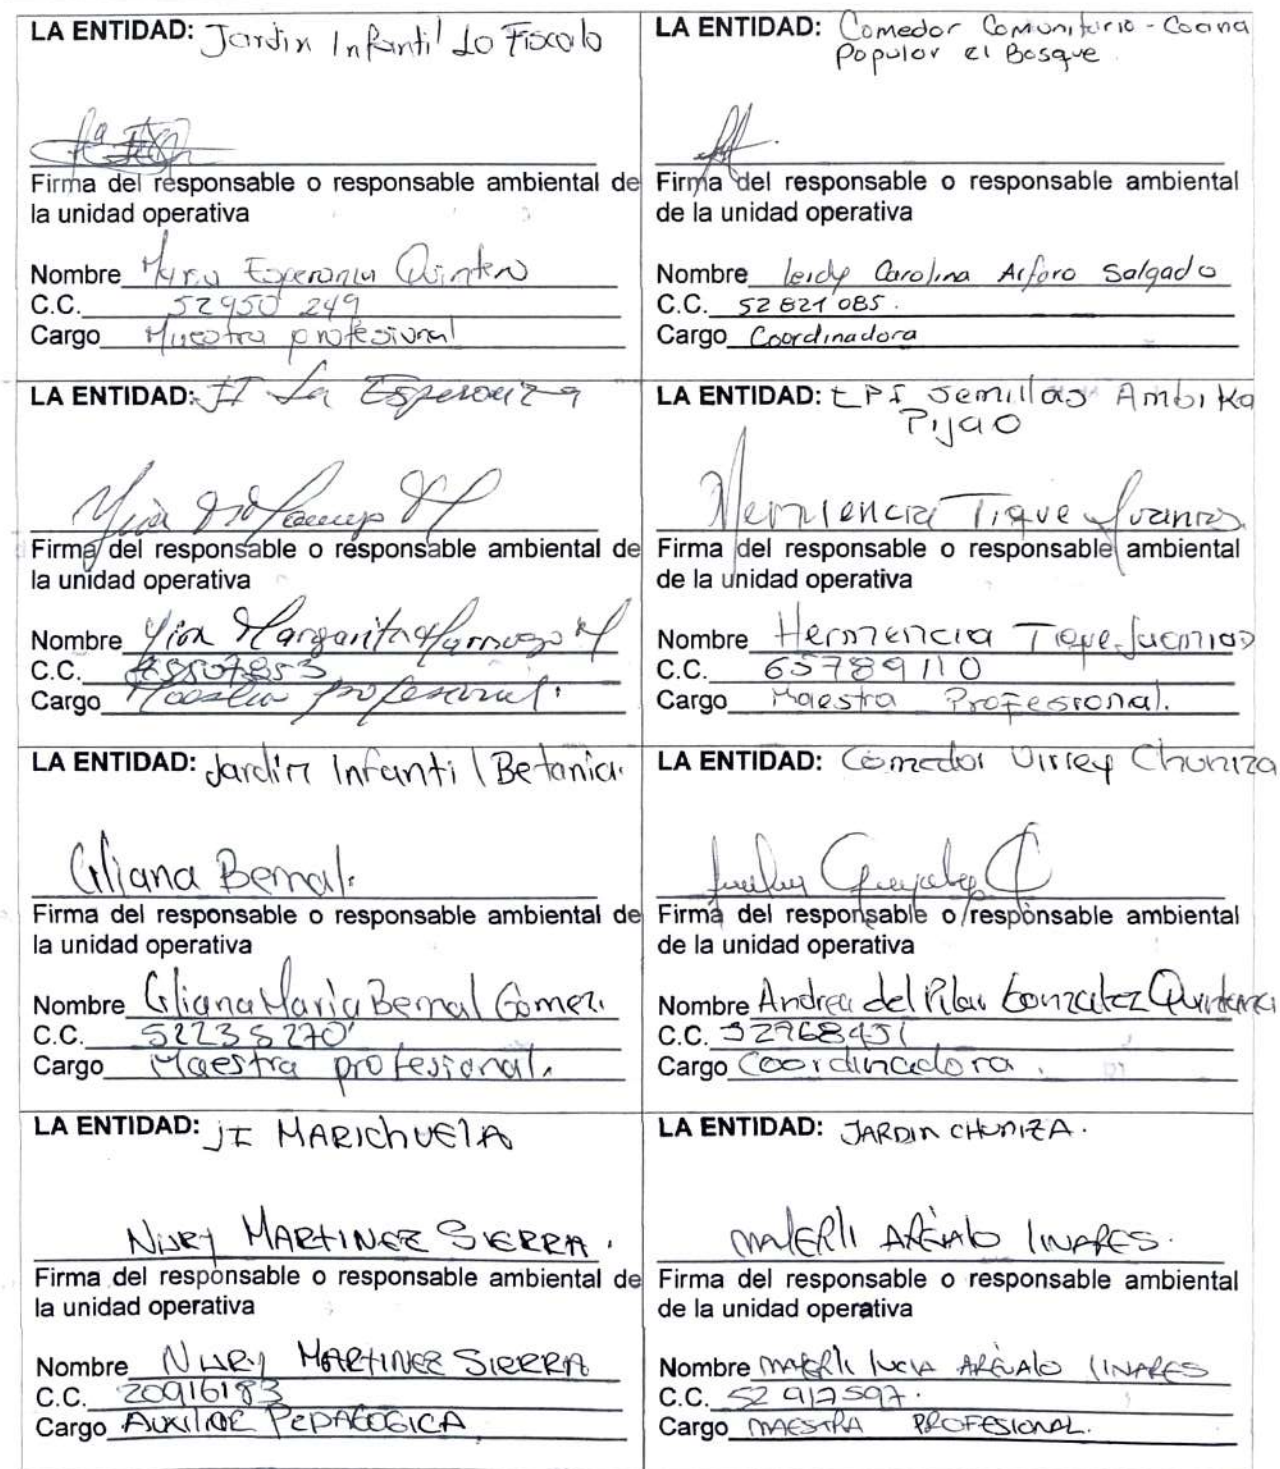 LA ENTIDAD: Jardin Infantil La Fiscala
Firma del responsable o responsable ambiental de
la unidad operativa
Nombre Esperanza Quintero
C.C. 52950 249
Cargo Maestra profesional
LA ENTIDAD: Comedor Comunitario - Cocina
Popular el Bosque
Firma del responsable o responsable ambiental
de la unidad operativa
Nombre Leidy Carolina Alfaro Salgado
C.C. 52821085.
Cargo Coordinadora
LA ENTIDAD: JI La Esperanza
Firma del responsable o responsable ambiental de
la unidad operativa
Nombre Margarita
C.C.
Cargo Maestra profesional.
LA ENTIDAD: EPI Semillas Ambika
Pijao
Hermencia Tique
Firma del responsable o responsable ambiental
de la unidad operativa
Nombre Hermencia Tique
C.C. 65789110
Cargo Maestra Profesional.
LA ENTIDAD: Jardin Infantil Betania.
Liliana Bernal.
Firma del responsable o responsable ambiental de
la unidad operativa
Nombre Liliana Maria Bernal Gómez.
C.C. 52235270
Cargo Maestra profesional.
LA ENTIDAD: Comedor Virrey Chuniza
Firma del responsable o responsable ambiental
de la unidad operativa
Nombre Andrea del Pilar Gonzalez Quintana
C.C.
Cargo Coordinadora.
LA ENTIDAD: JI MARIChUElA
NURY MARTINEZ SIERRA.
Firma del responsable o responsable ambiental de
la unidad operativa
Nombre NURY MARTINEZ SIERRA
C.C. 20916183
Cargo AUXILIAR PEDAGOGICA
LA ENTIDAD: JARDIN CHUNIZA.
MAYERLI ARÉVALO LINARES.
Firma del responsable o responsable ambiental
de la unidad operativa
Nombre MAYERLI LUCIA ARÉVALO LINARES
C.C. 52 917597.
Cargo MAESTRA PROFESIONAL.